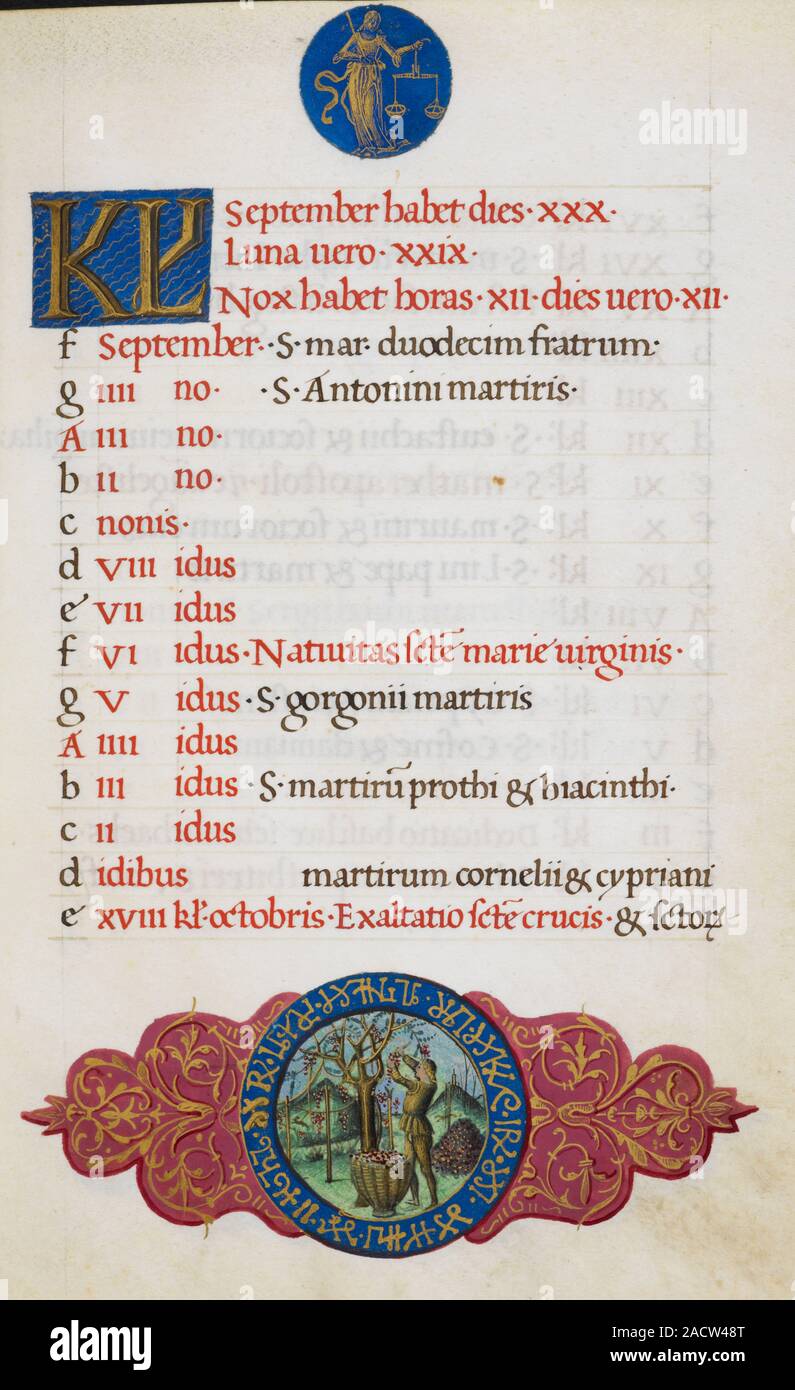 KL September habet dies · xxx ·
Luna uero · xxix ·
Nox habet horas · xii · dies uero · xii ·
f September · S · mar · duodecim fratrum ·
g iiii no · · S · Antonini martiris ·
A iii no ·
b ii no ·
c nonis ·
d viii idus
e vii idus
f vi idus · Natiuitas sctē marie uirginis ·
g v idus · S · gorgonii martiris
A iiii idus
b iii idus · S · martirū prothi & hiacinthi ·
c ii idus
d idibus martirum cornelii & cypriani
e xviii kl' octobris · Exaltatio sctē crucis · & sctoꝝ
a
alamy
alamy
Image ID: 2ACW48T
www.alamy.com